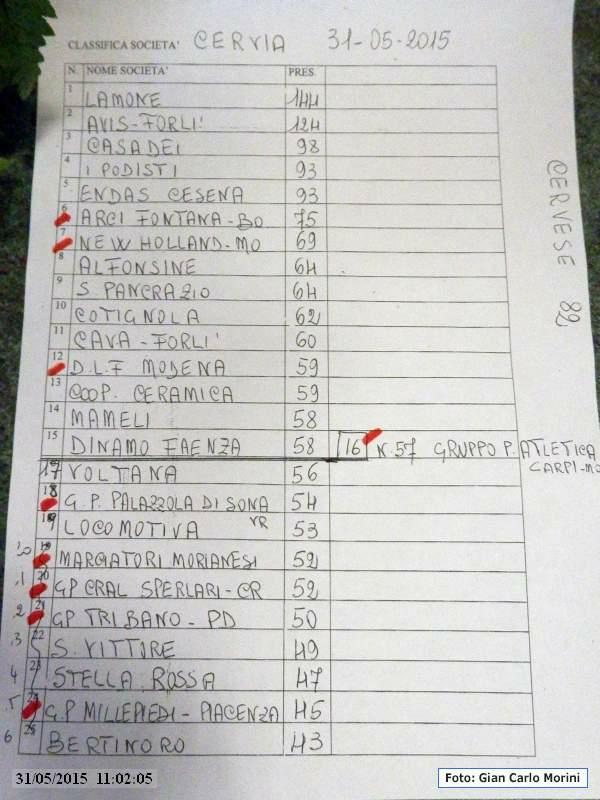 CLASSIFICA SOCIETA' CERVIA 31-05-2015
N. NOME SOCIETA' PRES.
1 LAMONE 144
2 AVIS-FORLI' 124
3 CASADEI 98
4 I PODISTI 93
5 ENDAS CESENA 93
6 ARCI FONTANA-BO 75
7 NEW HOLLAND-MO 69
8 ALFONSINE 64
9 S PANCRAZIO 64
10 COTIGNOLA 62
11 CAVA-FORLI' 60
12 D.L.F MODENA 59
13 COOP. CERAMICA 59
14 MAMELI 58
15 DINAMO FAENZA 58 16 N.57 GRUPPO P. ATLETICA
CARPI-MO
17 VOLTANA 56
18 G.P. PALAZZOLA DI SONA 54
VR
LOCOMOTIVA 53
MARCIATORI MORIANESI 52
.1 20 GP CRAL SPERLARI-CR 52
.2 21 GP TRIBANO - PD 50
.3 22 S. VITTORE 49
4 23 STELLA ROSSA 47
.5 24 G.P MILLEPIEDI - PIACENZA 45
6 25 BERTINORO 43
CERVESE 82
31/05/2015 11:02:05
Foto: Gian Carlo Morini